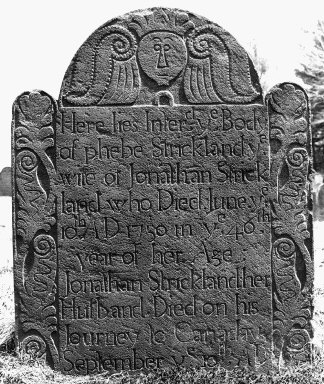 Here lies Interd yᵉ Body
of phebe Strickland yᵉ
wife of Jonathan Strick
land who Died June yᵉ
10th A D 1750 in yᵉ 46th
year of her Age
Jonathan Strickland her
Husband Died on his
Journey to Canada
September yᵉ